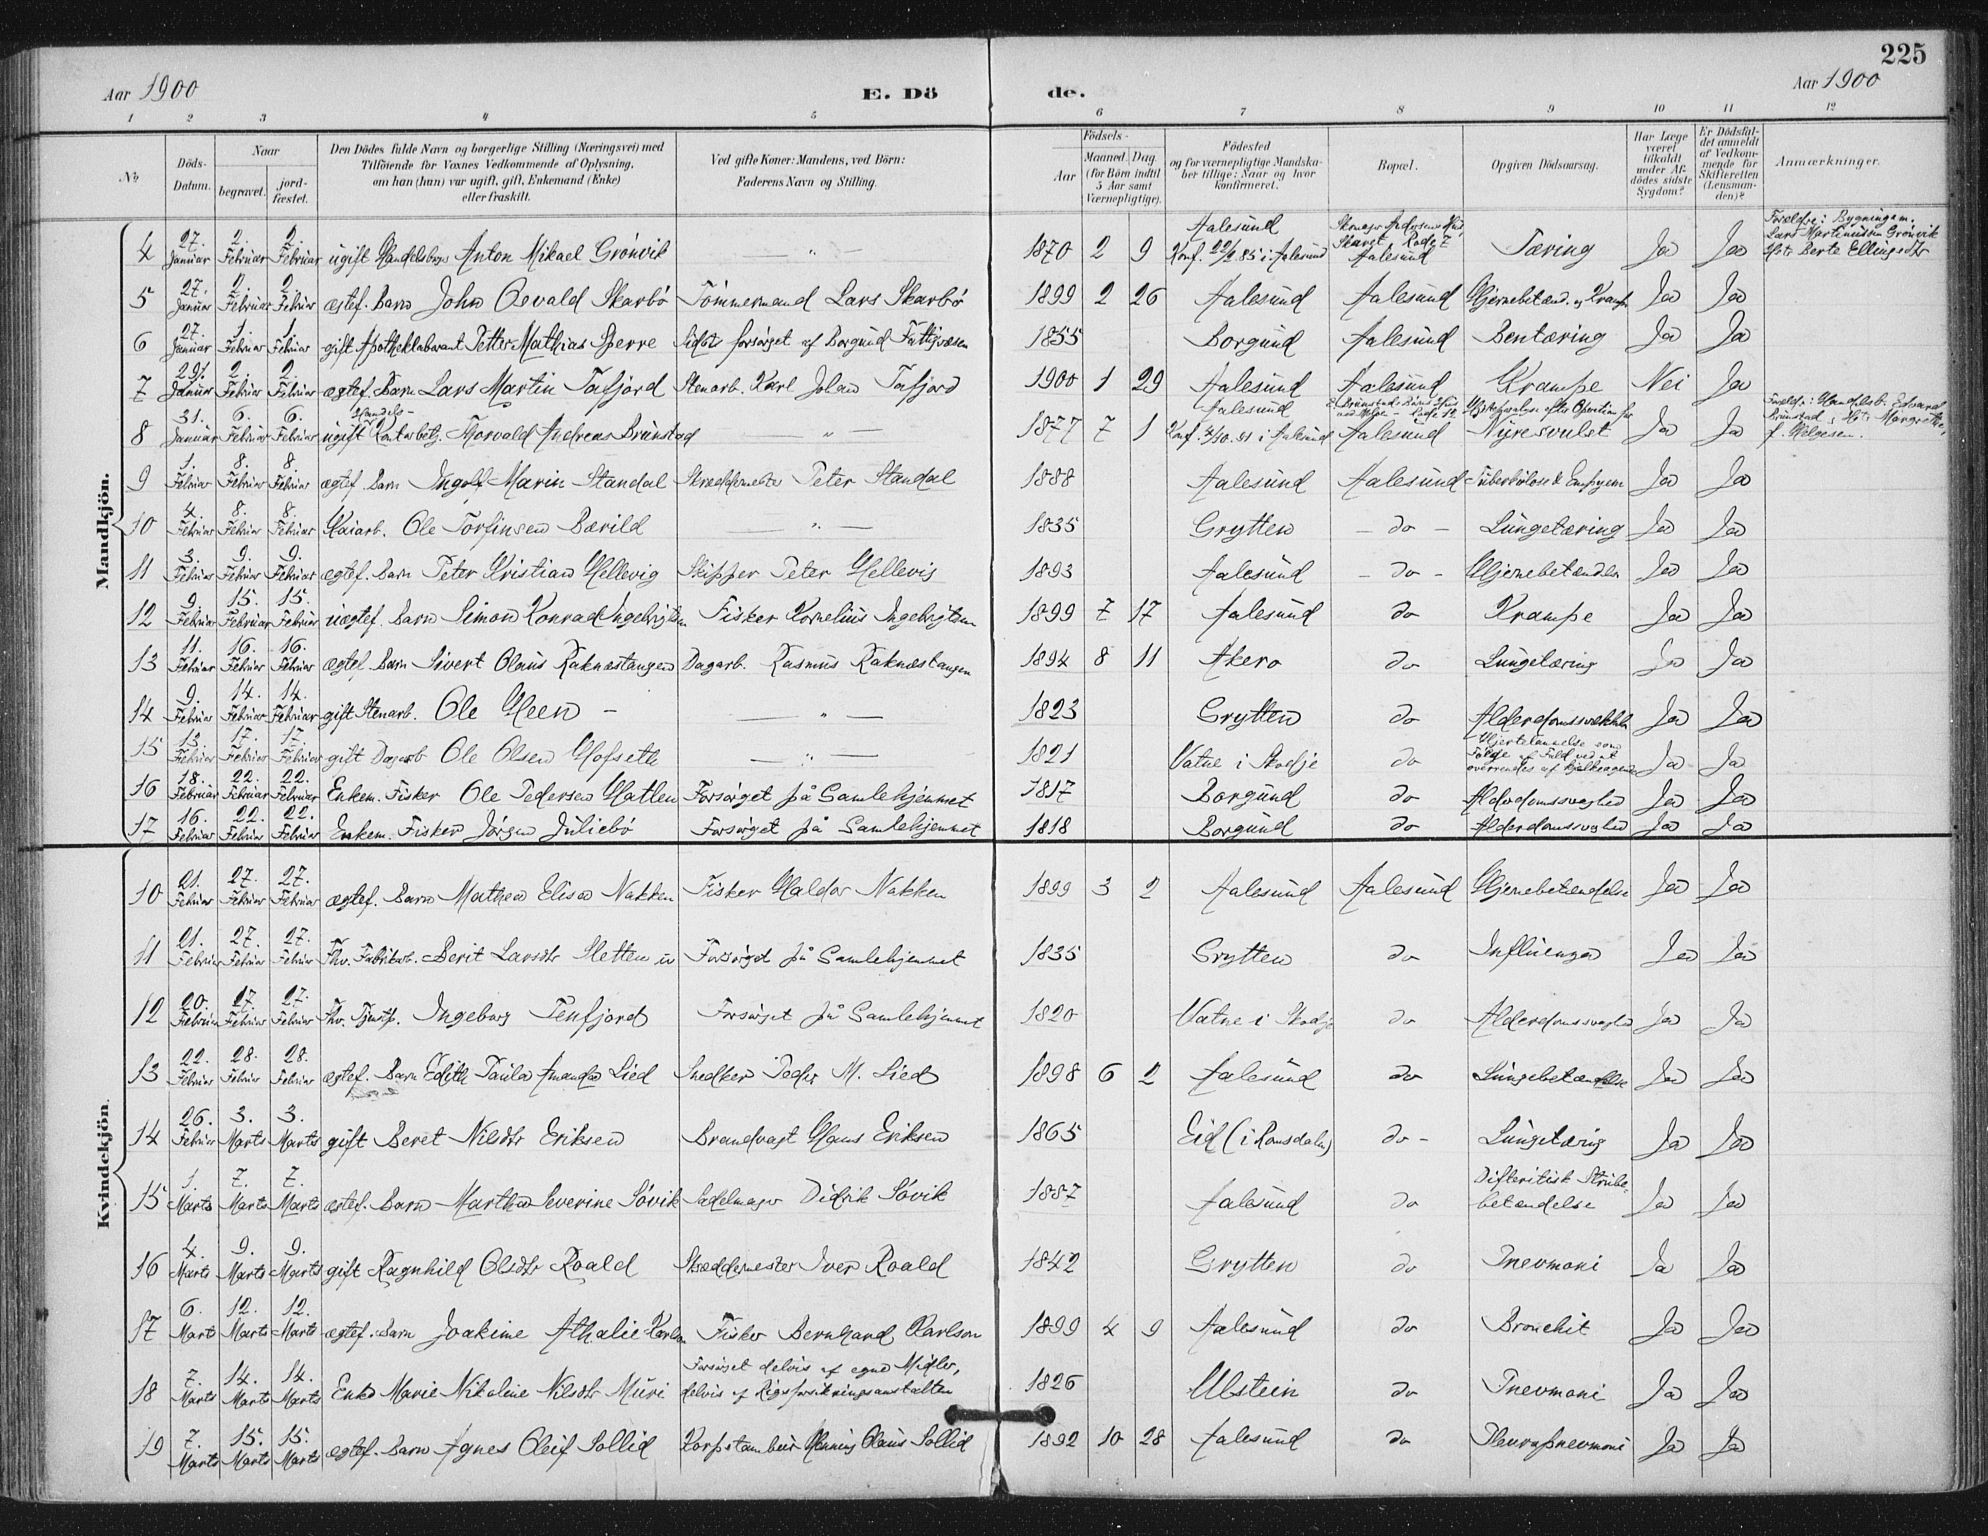 225
Aar 1900
E. Dö
de.
Aar 1900
1 2 3 4 5 6 7 8 9 10 11 12
No
Döds-Datum.
Naar
begravet.
jord-fæstet.
Den Dödes fulde Navn og borgerlige Stilling (Næringsvei) med
Tilföiende for Voxnes Vedkommende af Oplysning,
om han (hun) var ugift, gift, Enkemand (Enke)
eller fraskilt.
Ved gifte Koner: Mandens, ved Börn:
Faderens Navn og Stilling.
Födsels-
Aar
Maaned. Dag.
(for Börn indtil
5 Aar samt
Værnepligtige).
Födested
og for værnepligtige Mandska-
ber tillige: Naar og hvor
konfirmeret.
Bopæl.
Opgiven Dödsaarsag.
Har Læge
været
tilkaldt
under Af-
dödes sidste
Sygdom?
Er Dödsfal-
det anmeldt
af Vedkom-
mende for
Skifteretten
(Lensman-
den)?
Anmærkninger.
Mandkjön.
4 27. Januar 2. Februar 2. Februar ugift Anton Mikael Grönvik — " — 1870 2 9 Aalesund Konf. 85 i Aalesund Skaret Rode 7 Aalesund Tæring Ja Ja Forældre: Bygningsm. Lars Martinussen Grönvik Berte Ellingsdtr
5 27. Januar 2. Februar 2. Februar ægtef. Barn John Osvald Skarbö Tömmermand Lars Skarbö 1899 2 26 Aalesund Aalesund Hjernebetænd. og Krampe Ja Ja
6 27. Januar 1. Februar 1. Februar gift Apotheklaborant Petter Mathias Sperre Sidst forsörget af Borgund Fattigvæsen 1855 Borgund Aalesund Bentæring Ja Ja
7 29. Januar 2. Februar 2. Februar ægtef. Barn Lars Martin Tafjord Stenarb. Karl Johan Tafjord 1900 1 29 Aalesund Aalesund Krampe Nei Ja
8 31. Januar 6. Februar 6. Februar ugift Handels- Thorvald Andreas Brünstad — " — 1877 7 1 Aalesund Konf. i Aalesund Aalesund Nyresvulst Ja Ja Forældre: Handelsb. Edvard Brünstad f. Helgesen.
9 1. Februar 8. Februar 8. Februar ægtef. Barn Ingolf Marin Standal Skræddermester Peter Standal 1888 Aalesund Aalesund Empyem Ja Ja
10 4. Februar 8. Februar 8. Februar Kaiarb. Ole Torfinsen Bærild — " — 1835 Grytten - do - Lungetæring Ja Ja
11 3. Februar 9. Februar 9. Februar ægtef. Barn Peter Kristian Hellevig Skipper Peter Hellevig 1893 Aalesund - do - Hjernebetændelse Ja Ja
12 9. Februar 15. Februar 15. Februar uægtef. Barn Simon Konrad Ingebrigtsen Fisker Kornelius Ingebrigtsen 1899 7 17 Aalesund do Krampe Ja Ja
13 11. Februar 16. Februar 16. Februar ægtef. Barn Sivert Olaus Raknestangen Dagarb. Rasmus Raknæstangen 1894 8 11 Akerø do Lungetæring Ja Ja
14 9. Februar 14. Februar 14. Februar gift Stenarb. Ole Heen - — " — 1823 Grytten do Ja Ja
15 13. Februar 17. Februar 17. Februar gift Dagarb Ole Olsen Hofseth — " — 1821 Vatne i Skodje do Hjertelammelse som Følge af Fald ved at overrendes af Kjælkeagende Ja Ja
16 18. Februar 22. Februar 22. Februar Enkem. Fisker Ole Pedersen Hatlen Forsörget på Samlehjemmet 1817 Borgund do Alderdomssvaghed Ja Ja
17 16. Februar 22. Februar 22. Februar Enkem. Fisker Jörgen Juliebö Forsörget på Samlehjemmet 1818 Borgund do Alderdomssvaghed Ja Ja
Kvindekjön.
10 21. Februar 27. Februar 27. Februar ægtef. Barn Mathea Elisa Nakken Fisker Haldor Nakken 1899 3 2 Aalesund Aalesund Hjernebetændelse Ja Ja
11 21. Februar 27. Februar 27. Februar Fhv. Fabrikarb. Berit Larsdtr Sletten Forsörget på Samlehjemmet 1835 Grytten do Influenza Ja Ja
12 20. Februar 27. Februar 27. Februar Fhv. Tjenstp. Ingeborg Tenfjord Forsörget på Samlehjemmet 1820 Vatne i Skodje do Alderdomssvaghed Ja Ja
13 22. Februar 28. Februar 28. Februar ægtef. Barn Edith Paula Amanda Lied Snedker Peder M. Lied 1898 6 2 Aalesund do Lungebetændelse Ja Ja
14 26. Februar 3. Marts 3. Marts gift Beret Nilsdtr Eriksen Brandvagt Hans Eriksen 1865 Eid (i Romsdalen) do - Lungetæring Ja Ja
15 1. Marts 7. Marts 7. Marts ægtef. Barn Marthea Severine Sövik Sadelmager Didrik Sövik 1887 Aalesund do Difteritisk Strube-betændelse Ja Ja
16 4. Marts 9. Marts 9. Marts gift Ragnhild Olsdtr Roald Skræddermester Iver Roald 1842 Grytten do Pnevmoni Ja Ja
17 6. Marts 12. Marts 12. Marts ægtef. Barn Joakime Athalie Karlson Fisker Bernhard Karlson 1899 4 9 Aalesund do Bronchit Ja Ja
18 7. Marts 14. Marts 14. Marts Enke Marie Nikoline Nilsdtr Muri Forsörget delvis af egne Midler, delvis af Rigsforsikringsanstalten 1826 Ulstein do Pnevmoni Ja Ja
19 7. Marts 15. Marts 15. Marts ægtef. Barn Agnes Oleif Sollid Korpstambur Henning Olaus Sollid 1892 10 28 Aalesund do Pleuropnevmoni Ja Ja